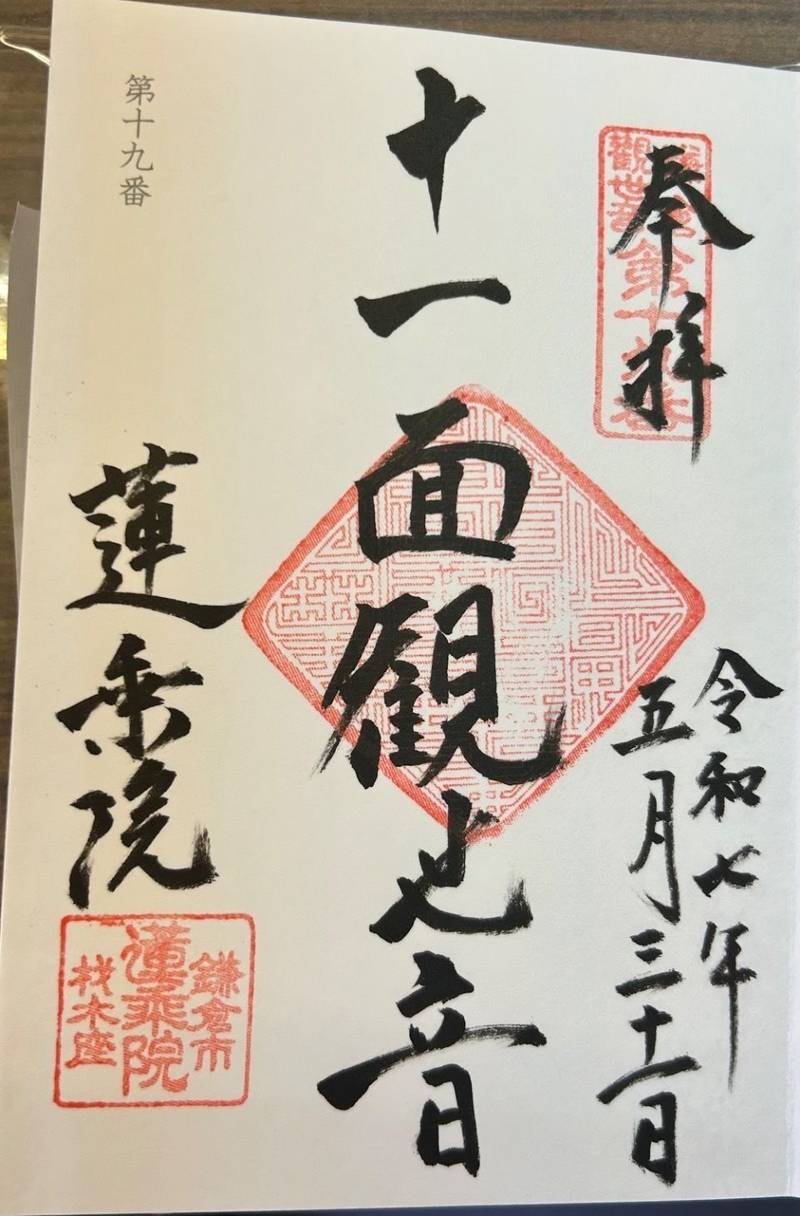 奉拝
令和七年
五月三十一日
十一面観世音
第十九番
蓮乗院
鎌倉市
蓮乗院
材木座